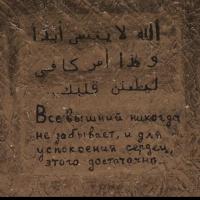 الله لا ينسى أبداً
و هذا أمر كافي
ليطمئن قلبك..
Всевышний никогда
не забывает, и для
успокоения сердец,
этого достаточно...